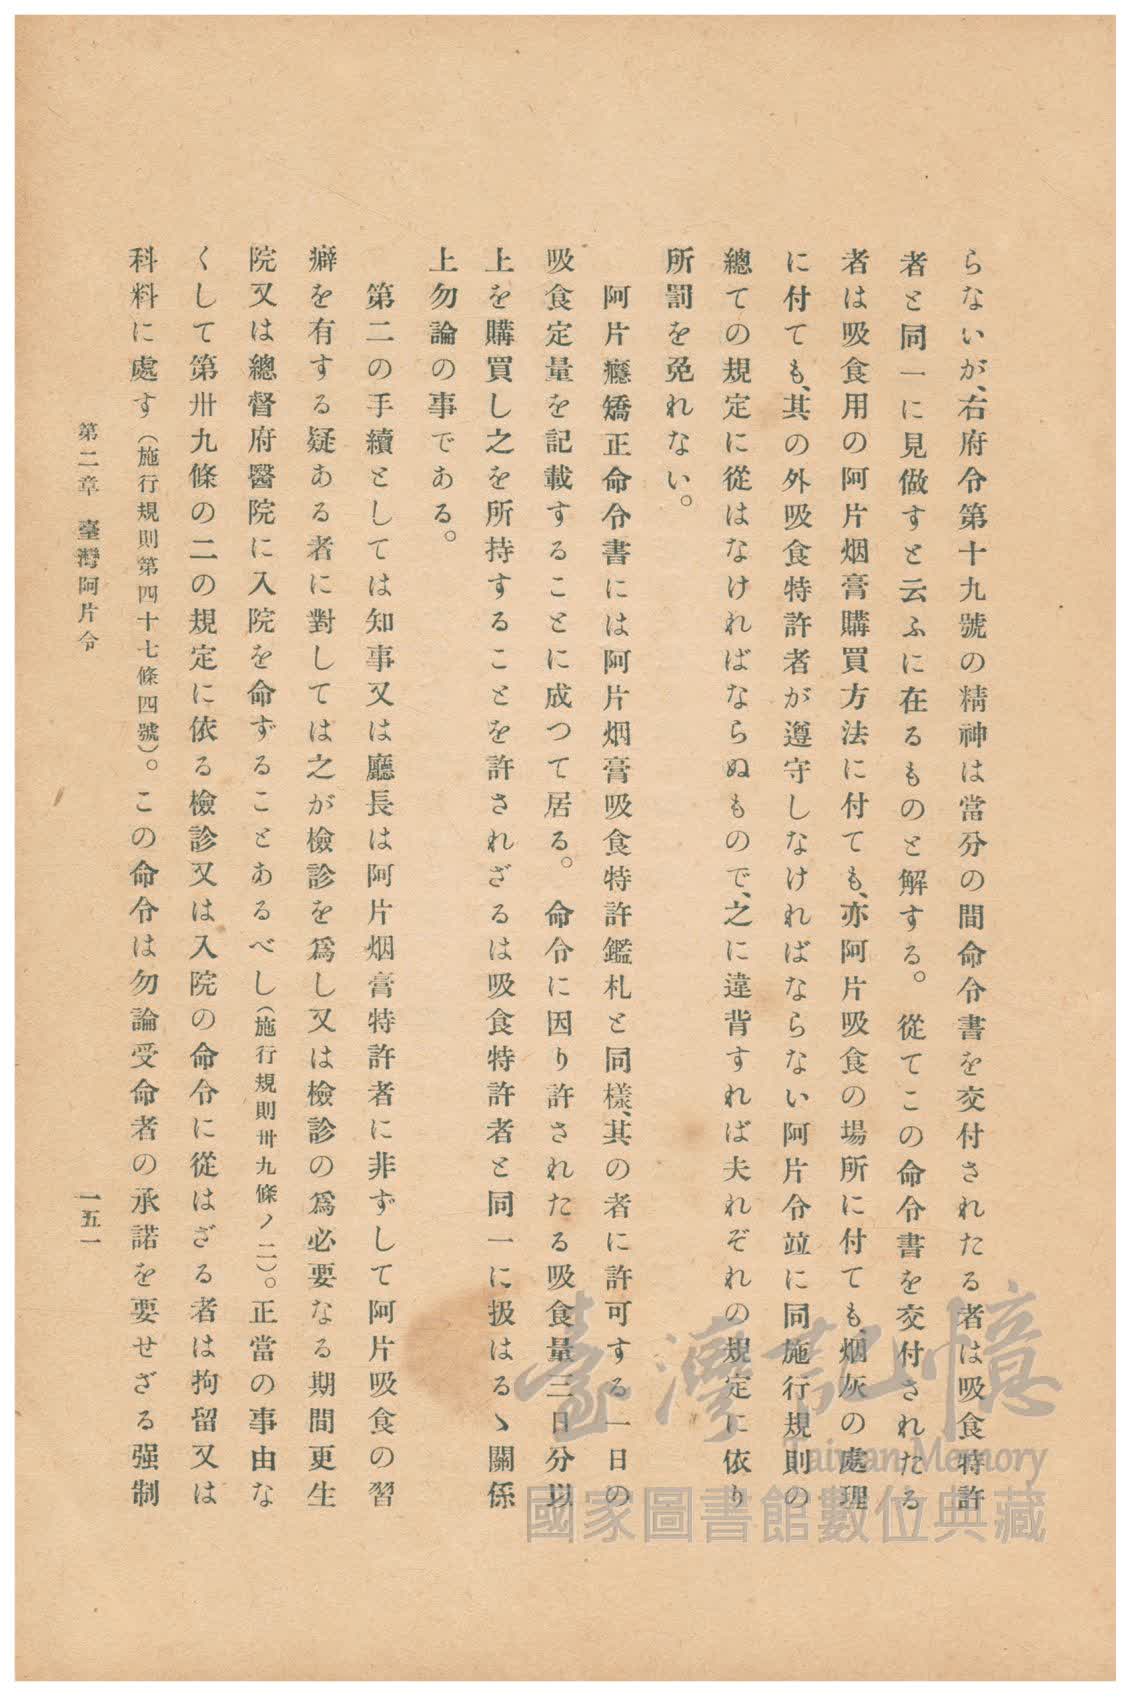 らないが、右府令第十九號の精神は當分の間命令書を交付されたる者は吸食特許
者と同一に見做すと云ふに在るものと解する。從てこの命令書を交付されたる
者は吸食用の阿片烟膏購買方法に付ても、亦阿片吸食の場所に付ても、烟灰の處理
に付ても、其の外吸食特許者が遵守しなければならない阿片令竝に同施行規則の
總ての規定に從はなければならぬもので、之に違背すれば夫れぞれの規定に依り
所罰を免れない。
阿片癮矯正命令書には阿片烟膏吸食特許鑑札と同樣、其の者に許可する一日の
吸食定量を記載することに成つて居る。命令に因り許されたる吸食量三日分以
上を購買し之を所持することを許されざるは吸食特許者と同一に扱はるゝ關係
上勿論の事である。
第二の手續としては知事又は廳長は阿片烟膏特許者に非ずして阿片吸食の習
癖を有する疑ある者に對しては之が檢診を爲し又は檢診の爲必要なる期間更生
院又は總督府醫院に入院を命ずることあるべし（施行規則卅九條ノ二）。正當の事由な
くして第卅九條の二の規定に依る檢診又は入院の命令に從はざる者は拘留又は
科料に處す（施行規則第四十七條四號）。この命令は勿論受命者の承諾を要せざる强制
第二章 臺灣阿片令
一五一
臺灣記憶
Taiwan Memory
國家圖書館數位典藏